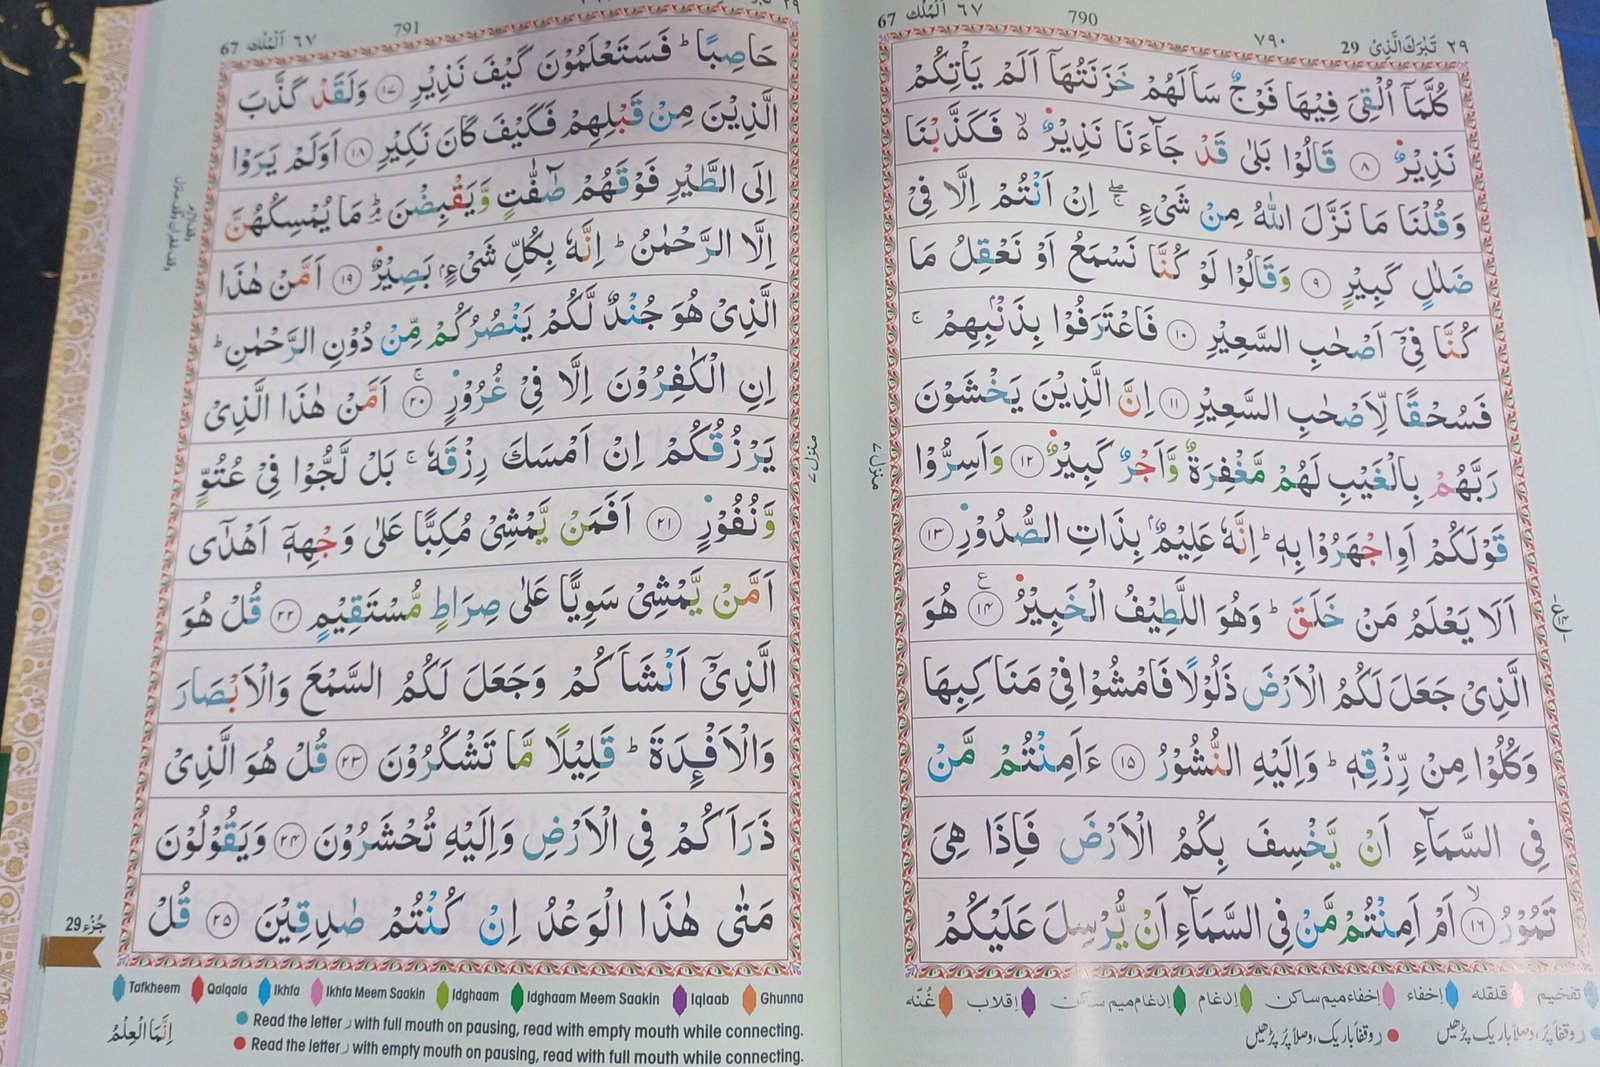 ٢٩ تَبٰرَكَ الَّذِیْ 29
٧٩٠
790
٦٧ اَلْمُلْك 67
كُلَّمَاۤ اُلْقِیَ فِیْهَا فَوْجٌ سَاَلَهُمْ خَزَنَتُهَاۤ اَلَمْ یَاْتِكُمْ
نَذِیْرٌ ٨ قَالُوْا بَلٰی قَدْ جَآءَنَا نَذِیْرٌ ۙ۬ فَكَذَّبْنَا
وَقُلْنَا مَا نَزَّلَ اللّٰهُ مِنْ شَیْءٍ ۖۚ اِنْ اَنْتُمْ اِلَّا فِیْ
ضَلٰلٍ كَبِیْرٍ ٩ وَقَالُوْا لَوْ كُنَّا نَسْمَعُ اَوْ نَعْقِلُ مَا
كُنَّا فِیْۤ اَصْحٰبِ السَّعِیْرِ ١٠ فَاعْتَرَفُوْا بِذَنْۢبِهِمْ ۚ
فَسُحْقًا لِّاَصْحٰبِ السَّعِیْرِ ١١ اِنَّ الَّذِیْنَ یَخْشَوْنَ
رَبَّهُمْ بِالْغَیْبِ لَهُمْ مَّغْفِرَةٌ وَّاَجْرٌ كَبِیْرٌ ١٢ وَاَسِرُّوْا
قَوْلَكُمْ اَوِ اجْهَرُوْا بِهٖ ؕ اِنَّهٗ عَلِیْمٌۢ بِذَاتِ الصُّدُوْرِ ١٣
اَلَا یَعْلَمُ مَنْ خَلَقَ ؕ وَهُوَ اللَّطِیْفُ الْخَبِیْرُ ١٤ هُوَ
الَّذِیْ جَعَلَ لَكُمُ الْاَرْضَ ذَلُوْلًا فَامْشُوْا فِیْ مَنَاكِبِهَا
وَكُلُوْا مِنْ رِّزْقِهٖ ؕ وَاِلَیْهِ النُّشُوْرُ ١٥ ءَاَمِنْتُمْ مَّنْ
فِی السَّمَآءِ اَنْ یَّخْسِفَ بِكُمُ الْاَرْضَ فَاِذَا هِیَ
تَمُوْرُ ١٦ اَمْ اَمِنْتُمْ مَّنْ فِی السَّمَآءِ اَنْ یُّرْسِلَ عَلَیْكُمْ
منزل ٧
تفخیم قلقله إخفاء إخفاء میم ساکن إدغام إدغام میم ساکن إقلاب غُنّه
ر وقفاً پُر، وصلاً باریک پڑھیں
ر وقفاً باریک، وصلاً پُر پڑھیں
791
٦٧ اَلْمُلْك 67
حَاصِبًا ؕ فَسَتَعْلَمُوْنَ كَیْفَ نَذِیْرِ ١٧ وَلَقَدْ كَذَّبَ
الَّذِیْنَ مِنْ قَبْلِهِمْ فَكَیْفَ كَانَ نَكِیْرِ ١٨ اَوَلَمْ یَرَوْا
اِلَی الطَّیْرِ فَوْقَهُمْ صٰٓفّٰتٍ وَّیَقْبِضْنَ ؔۘؕ مَا یُمْسِكُهُنَّ
اِلَّا الرَّحْمٰنُ ؕ اِنَّهٗ بِكُلِّ شَیْءٍۭ بَصِیْرٌ ١٩ اَمَّنْ هٰذَا
الَّذِیْ هُوَ جُنْدٌ لَّكُمْ یَنْصُرُكُمْ مِّنْ دُوْنِ الرَّحْمٰنِ ؕ
اِنِ الْكٰفِرُوْنَ اِلَّا فِیْ غُرُوْرٍ ٢٠ ۚ اَمَّنْ هٰذَا الَّذِیْ
یَرْزُقُكُمْ اِنْ اَمْسَكَ رِزْقَهٗ ۚ بَلْ لَّجُّوْا فِیْ عُتُوٍّ
وَّنُفُوْرٍ ٢١ اَفَمَنْ یَّمْشِیْ مُكِبًّا عَلٰی وَجْهِهٖۤ اَهْدٰۤی
اَمَّنْ یَّمْشِیْ سَوِیًّا عَلٰی صِرَاطٍ مُّسْتَقِیْمٍ ٢٢ قُلْ هُوَ
الَّذِیْۤ اَنْشَاَكُمْ وَجَعَلَ لَكُمُ السَّمْعَ وَالْاَبْصَارَ
وَالْاَفْـِٕدَةَ ؕ قَلِیْلًا مَّا تَشْكُرُوْنَ ٢٣ قُلْ هُوَ الَّذِیْ
ذَرَاَكُمْ فِی الْاَرْضِ وَاِلَیْهِ تُحْشَرُوْنَ ٢٤ وَیَقُوْلُوْنَ
مَتٰی هٰذَا الْوَعْدُ اِنْ كُنْتُمْ صٰدِقِیْنَ ٢٥ قُلْ
منزل ٧
جُزْء 29
Tafkheem Qalqala Ikhfa Ikhfa Meem Saakin Idghaam Idghaam Meem Saakin Iqlaab Ghunna
Read the letter ر with full mouth on pausing, read with empty mouth while connecting.
Read the letter ر with empty mouth on pausing, read with full mouth while connecting.
اِنَّمَا الْعِلْمُ